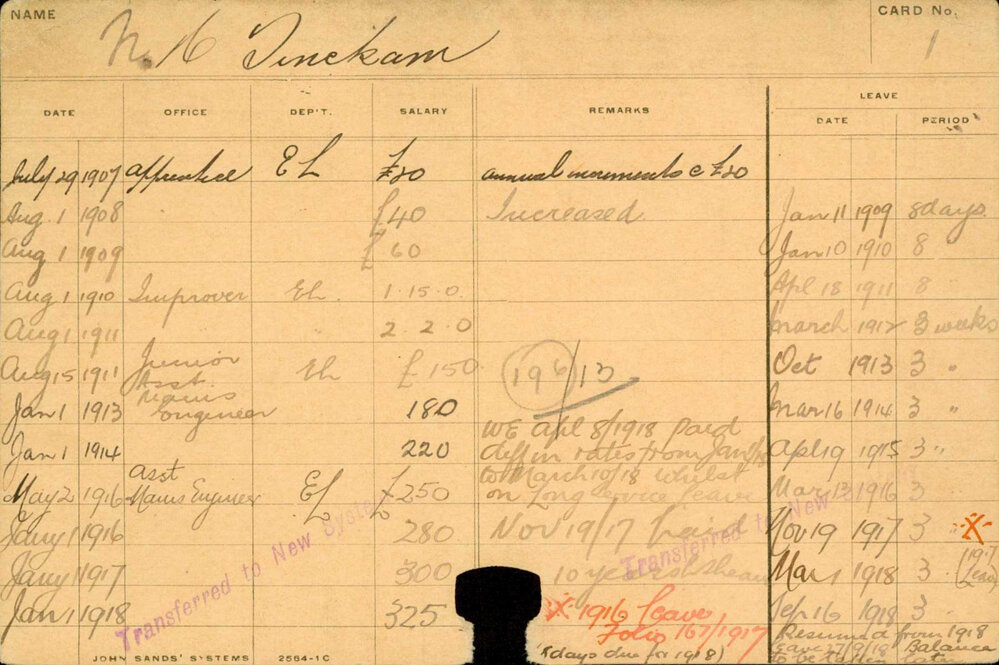 NAME CARD No.
N. H Tinckam 1
LEAVE
DATE OFFICE DEP'T. SALARY REMARKS DATE PERIOD
July 29 1907 Apprentice EL £20 annual increments @ £20
Aug 1 1908 £40 Increased Jan 11 1909 8 days
Aug 1 1909 £ 60 Jan 10 1910 8 "
Aug 1 1910 Improver EL. 1.15.0 Apl 18 1911 8 "
Aug 1 1911 2.2.0 March 1912 3 weeks
Aug 15 1911 Junior Asst. EL £150 196/13 Oct 1913 3 "
Jan 1 1913 Mains Engineer 180 Mar 16 1914 3 "
Jan 1 1914 220 WE Apl 8/1918 paid
diff in rates from Jan Apl 19 1915 3 "
May 2 1916 Asst Mains Engineer EL £250 to March 10/18 whilst
on Long service leave Mar 13 1916 3
Jany 1 1916 280 Nov 19/17 Nov 19 1917 3 "
Jany 1 1917 300 10 years Mar 1 1918 3 (1917 Leave)
Jan 1 1918 325 1916 leave Sep 16 1918 3
Folio 167/1917
Resumed from 1918
(days due for 1918)
leave 27/9/18 Balance
to be taken later
Transferred to New System
Transferred to New
JOHN SANDS' SYSTEMS 2564-1C